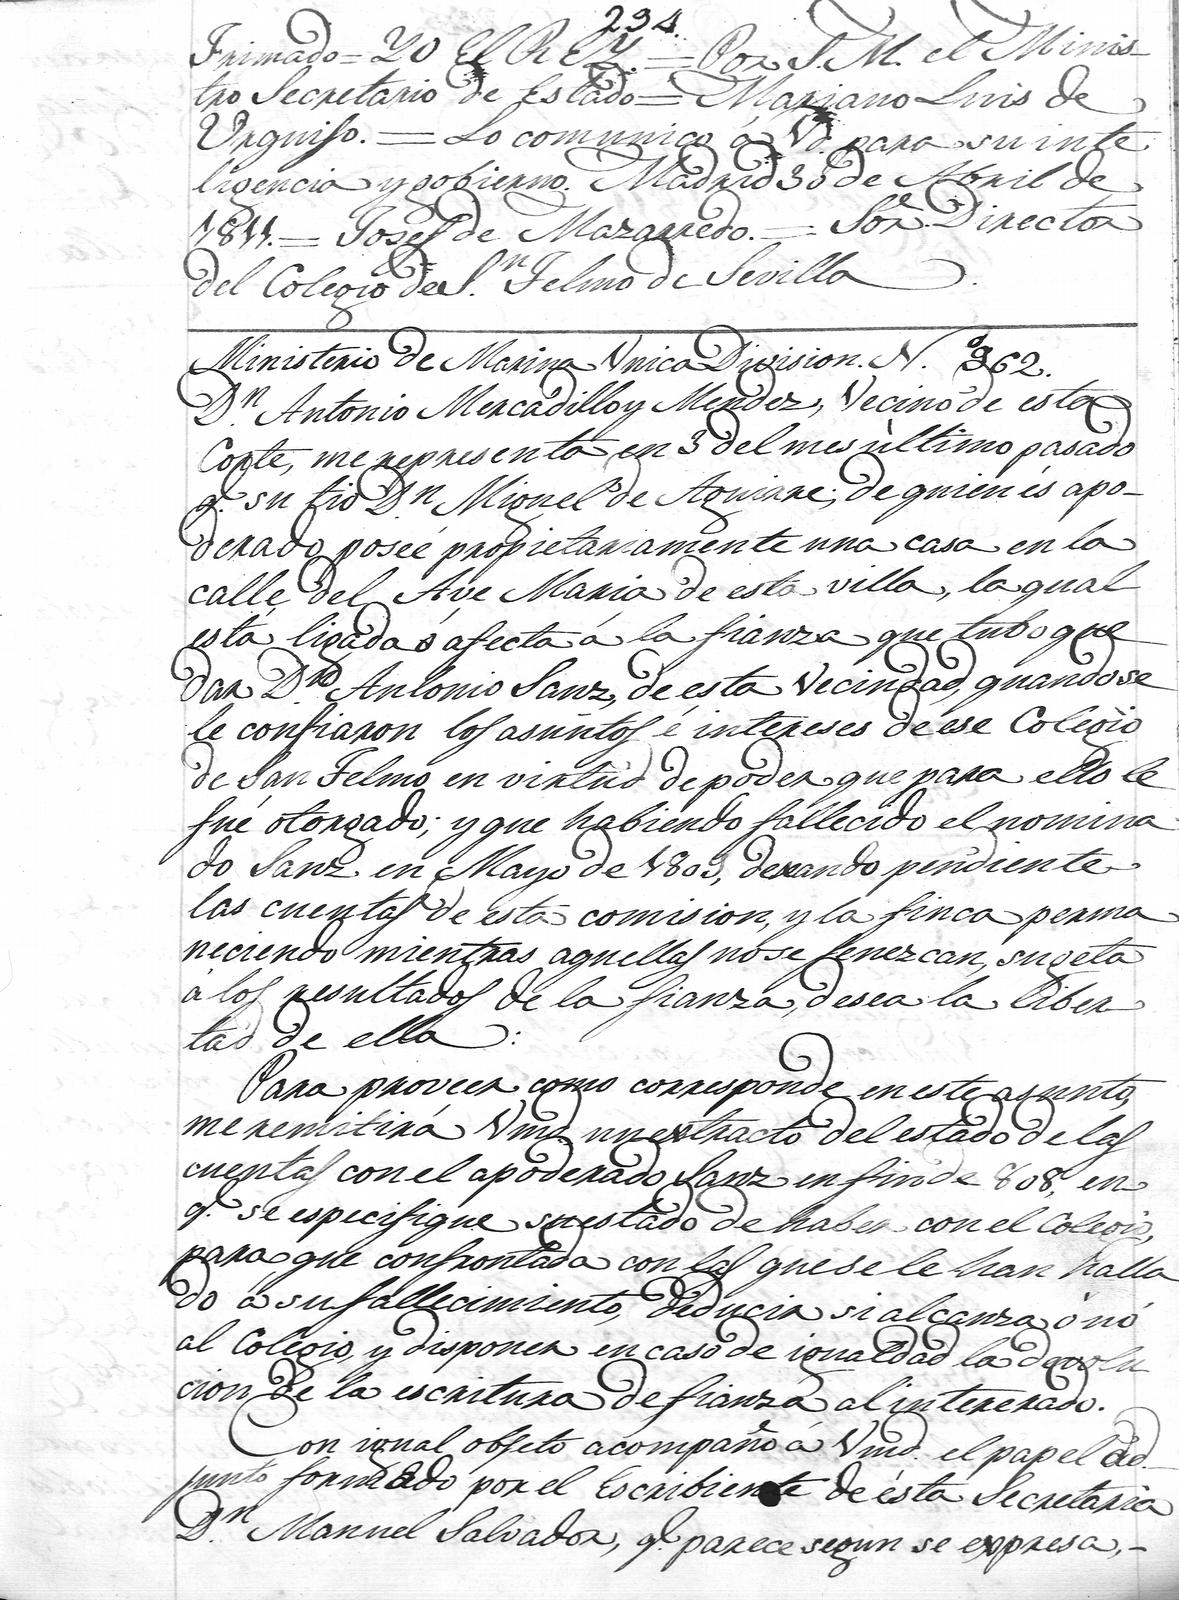 234.
Frimado = YO El REY. = Por S. M. el Minis-
tro Secretario de Estado = Mariano Luis de
Urquiso. = Lo comunico á Vd. para su inte
ligencia y gobierno. Madrid 30 de Abril de
1811. = Josef de Mazarredo. = Sor. Director
del Colegio de Sn. Telmo de Sevilla.
Ministerio de Marina Vnica Division. N. 362.
Dn. Antonio Mercadillo y Mendez, Vecino de esta
Corte, me representa en 3 del mes último pasado
q. su tio Dn Miguel de Aguirre, de quien és apo-
derado, poseé propietariamente una casa en la
calle del Ave Maria de esta villa, la qual
está ligada ó afecta á la fianza que tubo que
dar Dn. Antonio Sanz, de esta Vecindad, quando se
le confiaron los asuntos é intereses de ese Colegio
de San Telmo en virtud de poder que para ello le
fué otorgado; y que habiendo fallecido el nomina
do Sanz en Mayo de 1809, dexando pendiente
las cuentas de esta comision, y la finca perma
neciendo mientras aquellas no se fenezcan, sugeta
á los resultados de la fianza, desea la liber
tad de ella:
Para proveer como corresponde en este asunto,
me remitirá Vmd. un extracto del estado de las
cuentas con el apoderado Sanz en fin de 808, en
q. se especifique su estado de haber con el Colegio,
para que confrontada con las que se le han halla
do á su fallecimiento, deducir si alcanza ó nó
al Colegio, y disponer en caso de igualdad la devolu
cion de la escritura de fianza al interesado.
Con igual objeto acompaño á Vmd. el papel ad-
junto formado por el Escribiente de ésta Secretaria
Dn. Manuel Salvador, q. parece segun se expresa,-